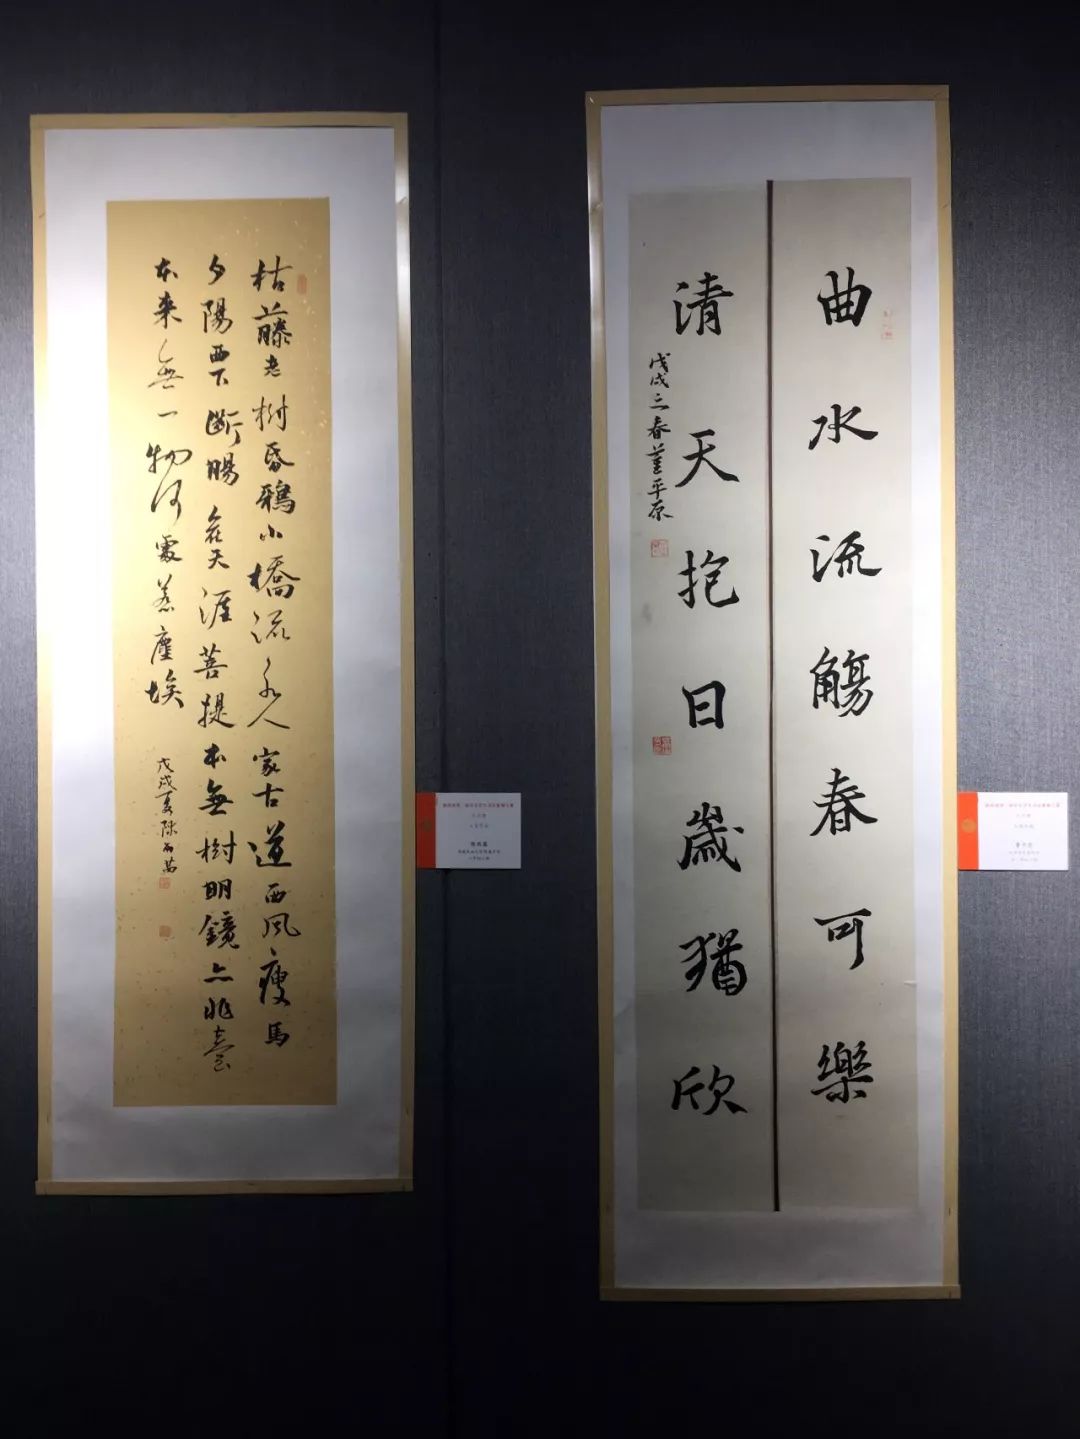 枯藤老樹昏鴉小橋流水人家古道西風瘦馬
夕陽西下斷腸人在天涯菩提本無樹明鏡亦非臺
本来無一物何處惹塵埃
戊戌夏陳
曲水流觴春可樂
清天抱日歲猶欣
戊戌三春董平原